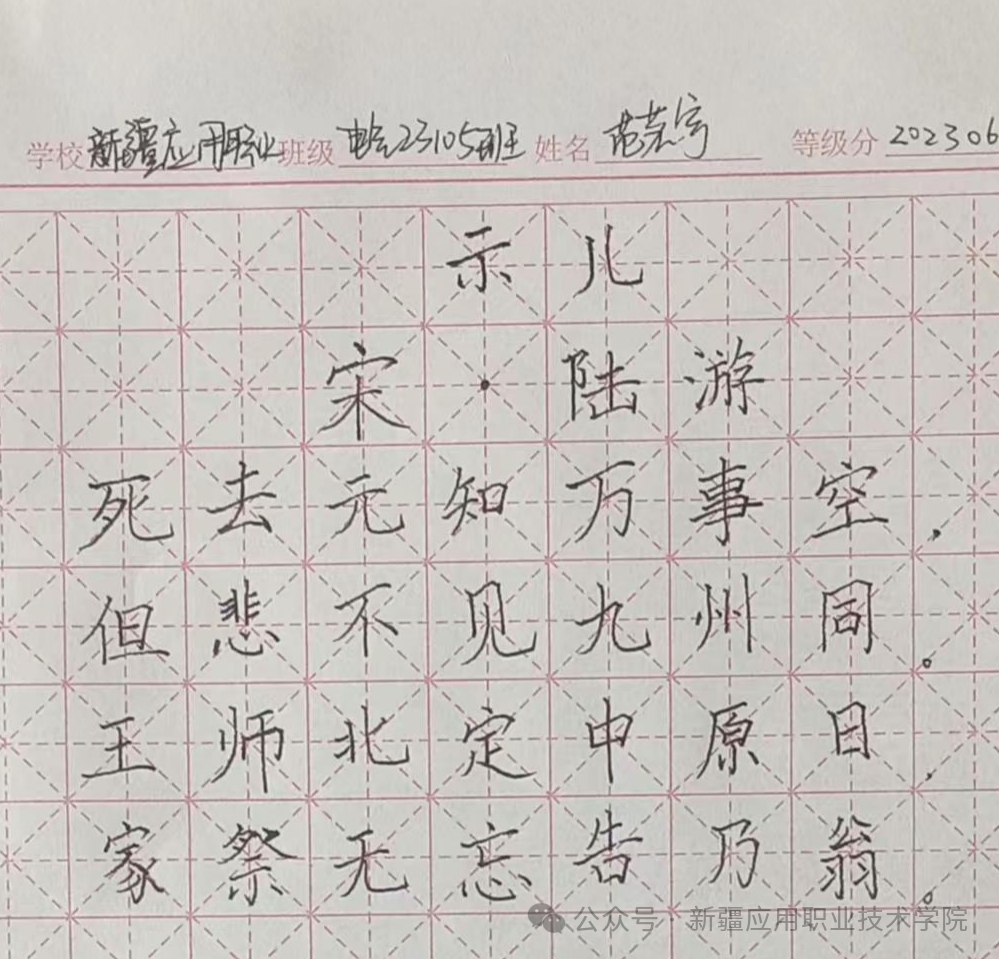 学校 新疆应用职业 班级 电会23105班 姓名 范芸宇 等级分 202306
示儿
宋·陆游
死去元知万事空，
但悲不见九州同。
王师北定中原日，
家祭无忘告乃翁。
公众号 新疆应用职业技术学院